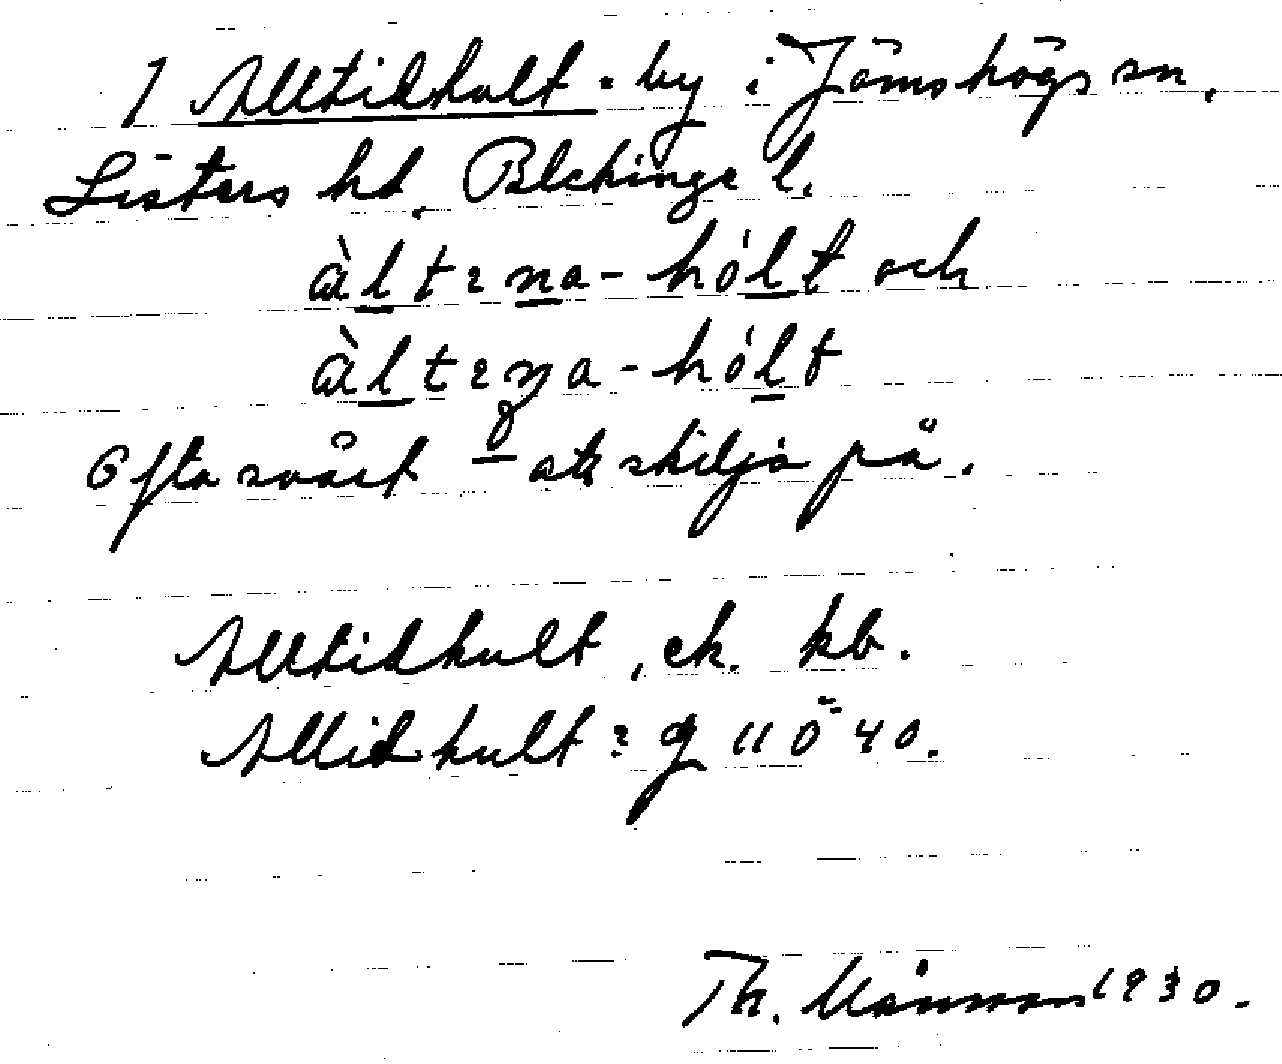 1 Alltidhult. by i Jämshögs sn.
Listers hd. Blekinge l.
àltɛna-hólt och
àltɛŋa-hólt
Ofta svårt att skilja på.
Alltidhult, ek. kb.
Allidhult: g 11 ö 40.
Th. 1930.